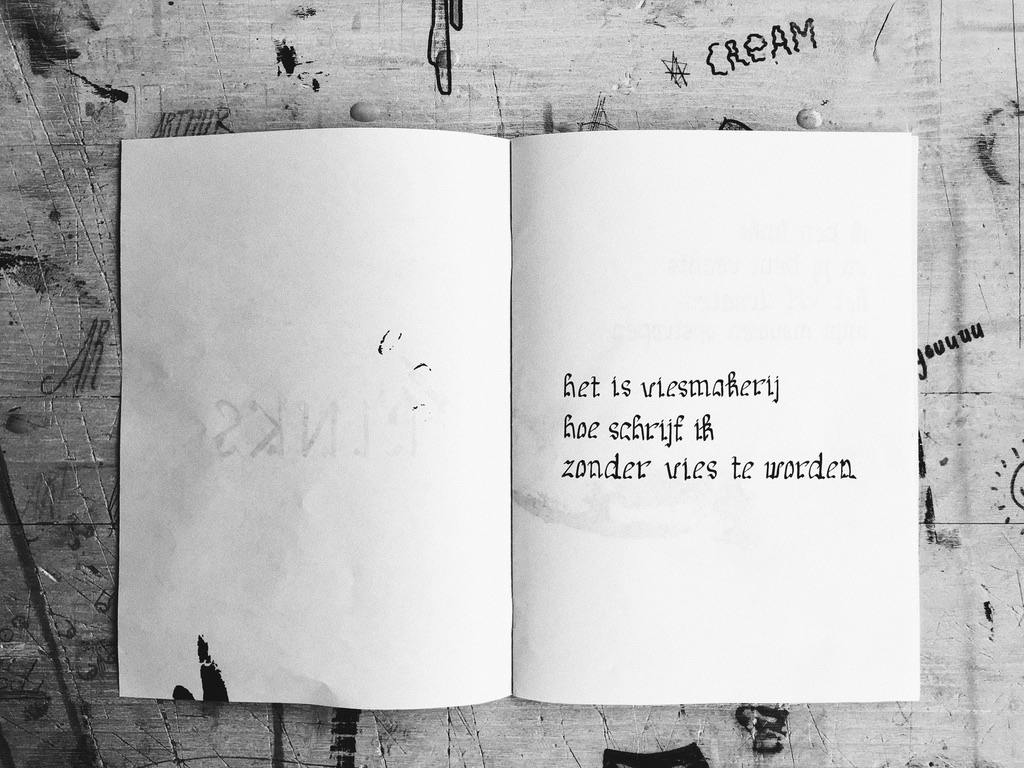 CREAM
ARTHUR
AR
youuuu
het is viesmakerij
hoe schrijf ik
zonder vies te worden